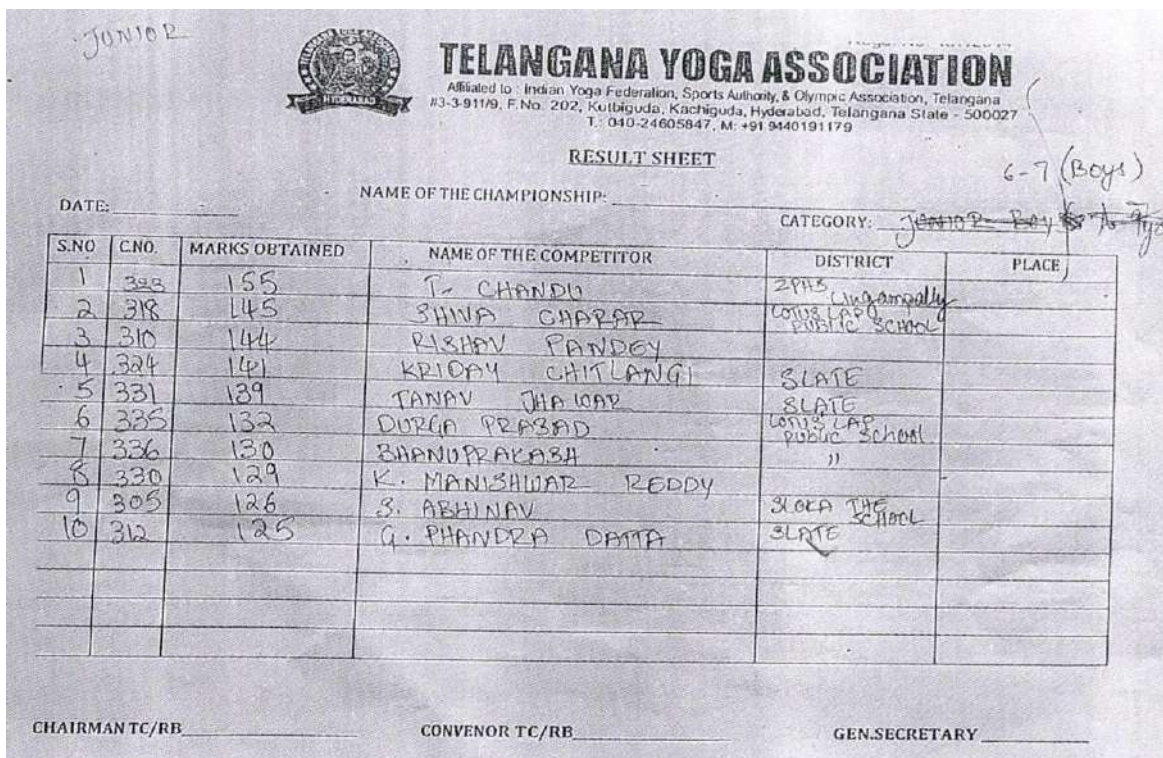 JUNIOR
HYDERABAD
TELANGANA YOGA ASSOCIATION
Affiliated to : Indian Yoga Federation, Sports Authority, & Olympic Association, Telangana
#3-3-911/9, F.No. 202, Kutbiguda, Kachiguda, Hyderabad, Telangana State - 500027
T.: 040-24605847, M: +91 9440191179
RESULT SHEET
6-7 (Boys)
DATE: NAME OF THE CHAMPIONSHIP:
CATEGORY: JUNIOR BOY
S.NO C.NO. MARKS OBTAINED NAME OF THE COMPETITOR DISTRICT PLACE
1 323 155 T. CHANDU ZPHS Lingampally
2 318 145 SHIVA CHARAR LOTUS LAP PUBLIC SCHOOL
3 310 144 RISHAV PANDEY
4 324 141 KRIDAY CHITLANGI SLATE
5 331 139 TANAV JHAWAR SLATE
6 335 132 DURGA PRASAD LOTUS LAP public School
7 336 130 BHANUPRAKASH "
8 330 129 K. MANISHWAR REDDY
9 305 126 S. ABHINAV SLOKA THE SCHOOL
10 312 125 G. PHANDRA DATTA SLATE
CHAIRMAN TC/RB CONVENOR TC/RB GEN.SECRETARY